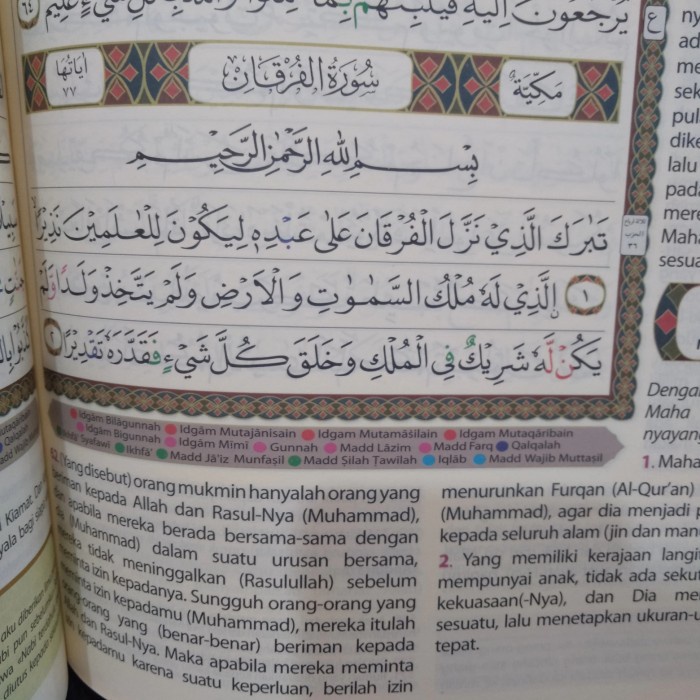 يَرْجِعُوْنَ اِلَيْهِ فَيُنَبِّئُهُمْ بِمَا
٦٤
مَكِّيَّةٌ سُوْرَةُ الْفُرْقَانِ اٰيَاتُهَا ٧٧
بِسْمِ اللّٰهِ الرَّحْمٰنِ الرَّحِيْمِ
تَبٰرَكَ الَّذِيْ نَزَّلَ الْفُرْقَانَ عَلٰى عَبْدِهٖ لِيَكُوْنَ لِلْعٰلَمِيْنَ نَذِيْرًا
١ اۨلَّذِيْ لَهٗ مُلْكُ السَّمٰوٰتِ وَالْاَرْضِ وَلَمْ يَتَّخِذْ وَلَدًا وَّلَمْ
يَكُنْ لَّهٗ شَرِيْكٌ فِى الْمُلْكِ وَخَلَقَ كُلَّ شَيْءٍ فَقَدَّرَهٗ تَقْدِيْرًا ٢
Idgām Bilāgunnah Idgam Mutajānisain Idgam Mutamāšilain Idgam Mutaqāribain
Idgham Bigunnah Idgām Mimī Gunnah Madd Lāzim Madd Farq Qalqalah
Syafawī Ikhfā' Madd Jā'iz Munfaṣil Madd Ṣilah Ṭawilah Iqlāb Madd Wajib Muttaṣil
62. (Yang disebut) orang mukmin hanyalah orang yang
beriman kepada Allah dan Rasul-Nya (Muhammad),
dan apabila mereka berada bersama-sama dengan
(Muhammad) dalam suatu urusan bersama,
mereka tidak meninggalkan (Rasulullah) sebelum
meminta izin kepadanya. Sungguh orang-orang yang
meminta izin kepadamu (Muhammad), mereka itulah
orang-orang yang (benar-benar) beriman kepada
Allah dan Rasul-Nya. Maka apabila mereka meminta
izin kepadamu karena suatu keperluan, berilah izin
menurunkan Furqan (Al-Qur'an)
(Muhammad), agar dia menjadi
kepada seluruh alam (jin dan
2. Yang memiliki kerajaan
mempunyai anak, tidak ada
kekuasaan(-Nya), dan Dia
sesuatu, lalu menetapkan
tepat.
Maha
1. Maha